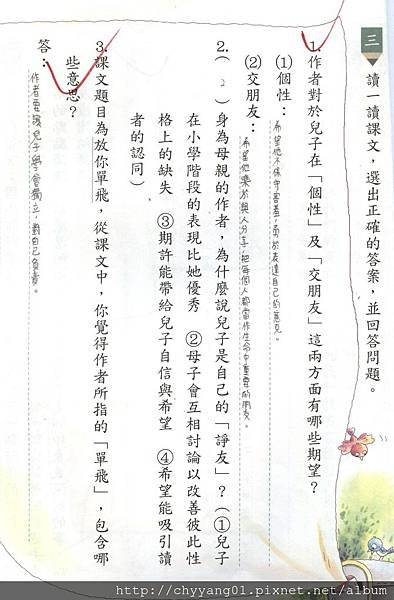 三
讀一讀課文，選出正確的答案，並回答問題。
1.作者對於兒子在「個性」及「交朋友」這兩方面有哪些期望？
(1)個性：
希望他不保守害羞，勇於表達自己的意見。
(2)交朋友：
希望他樂於與人分享，把每個人都當作生命中重要的朋友。
2.（2）身為母親的作者，為什麼說兒子是自己的「諍友」？（①兒子
在小學階段的表現比她優秀　②母子會互相討論以改善彼此性
格上的缺失　③期許能帶給兒子自信與希望　④希望能吸引讀
者的認同）
3.課文題目為放你單飛，從課文中，你覺得作者所指的「單飛」，包含哪
些意思？
答：
作者要讓兒子學會獨立，對自己負責。
http://chyyang01.pixnet.net/album